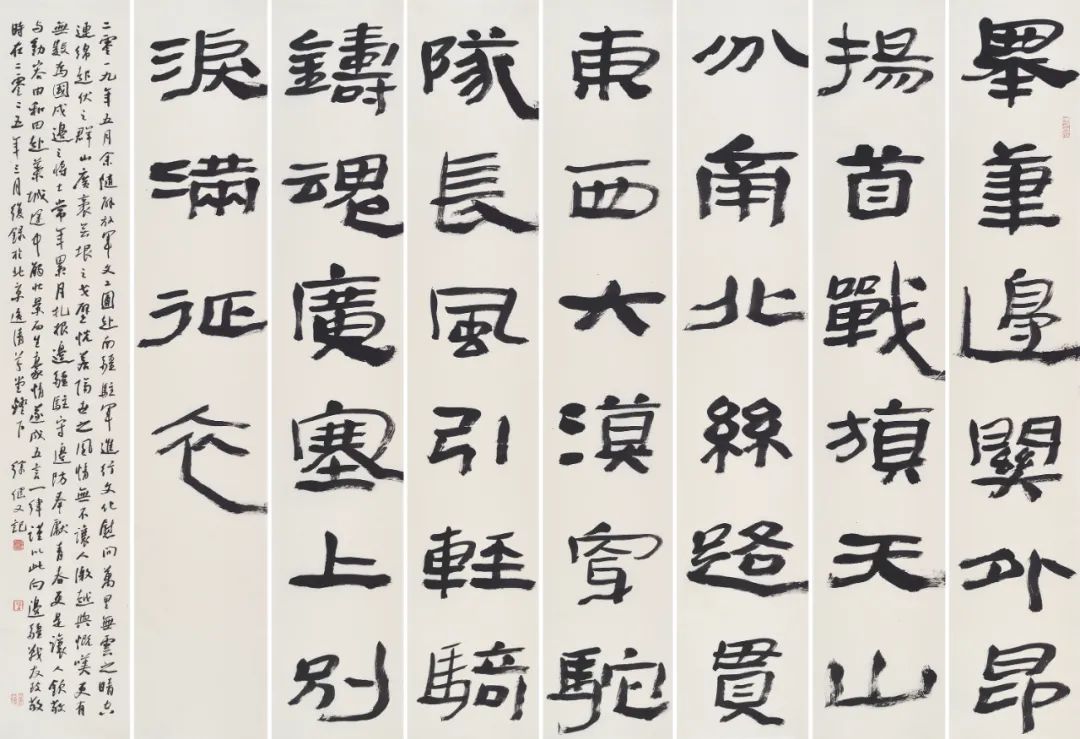 舉筆邊關外昂
揚首戰旗天山
分南北絲路貫
東西大漠穿駝
隊長風引輕騎
鑄魂廣塞上別
淚滿征衣
二零一九年五月余隨解放軍文工團赴南疆駐軍進行文化慰問萬里無雲之晴空
連綿起伏之群山廣袤無垠之戈壁恍若隔世之風情無不讓人激越與慨嘆更有
無數為國戍邊之將士常年累月扎根邊疆駐守邊防奉獻青春更是讓人欽敬
與動容由和田赴葉城途中觸此景而生豪情遂成五言一律謹以此向邊疆戰友致敬
時在二零二五年三月復錄於北京清草堂燈下 徐繼文記